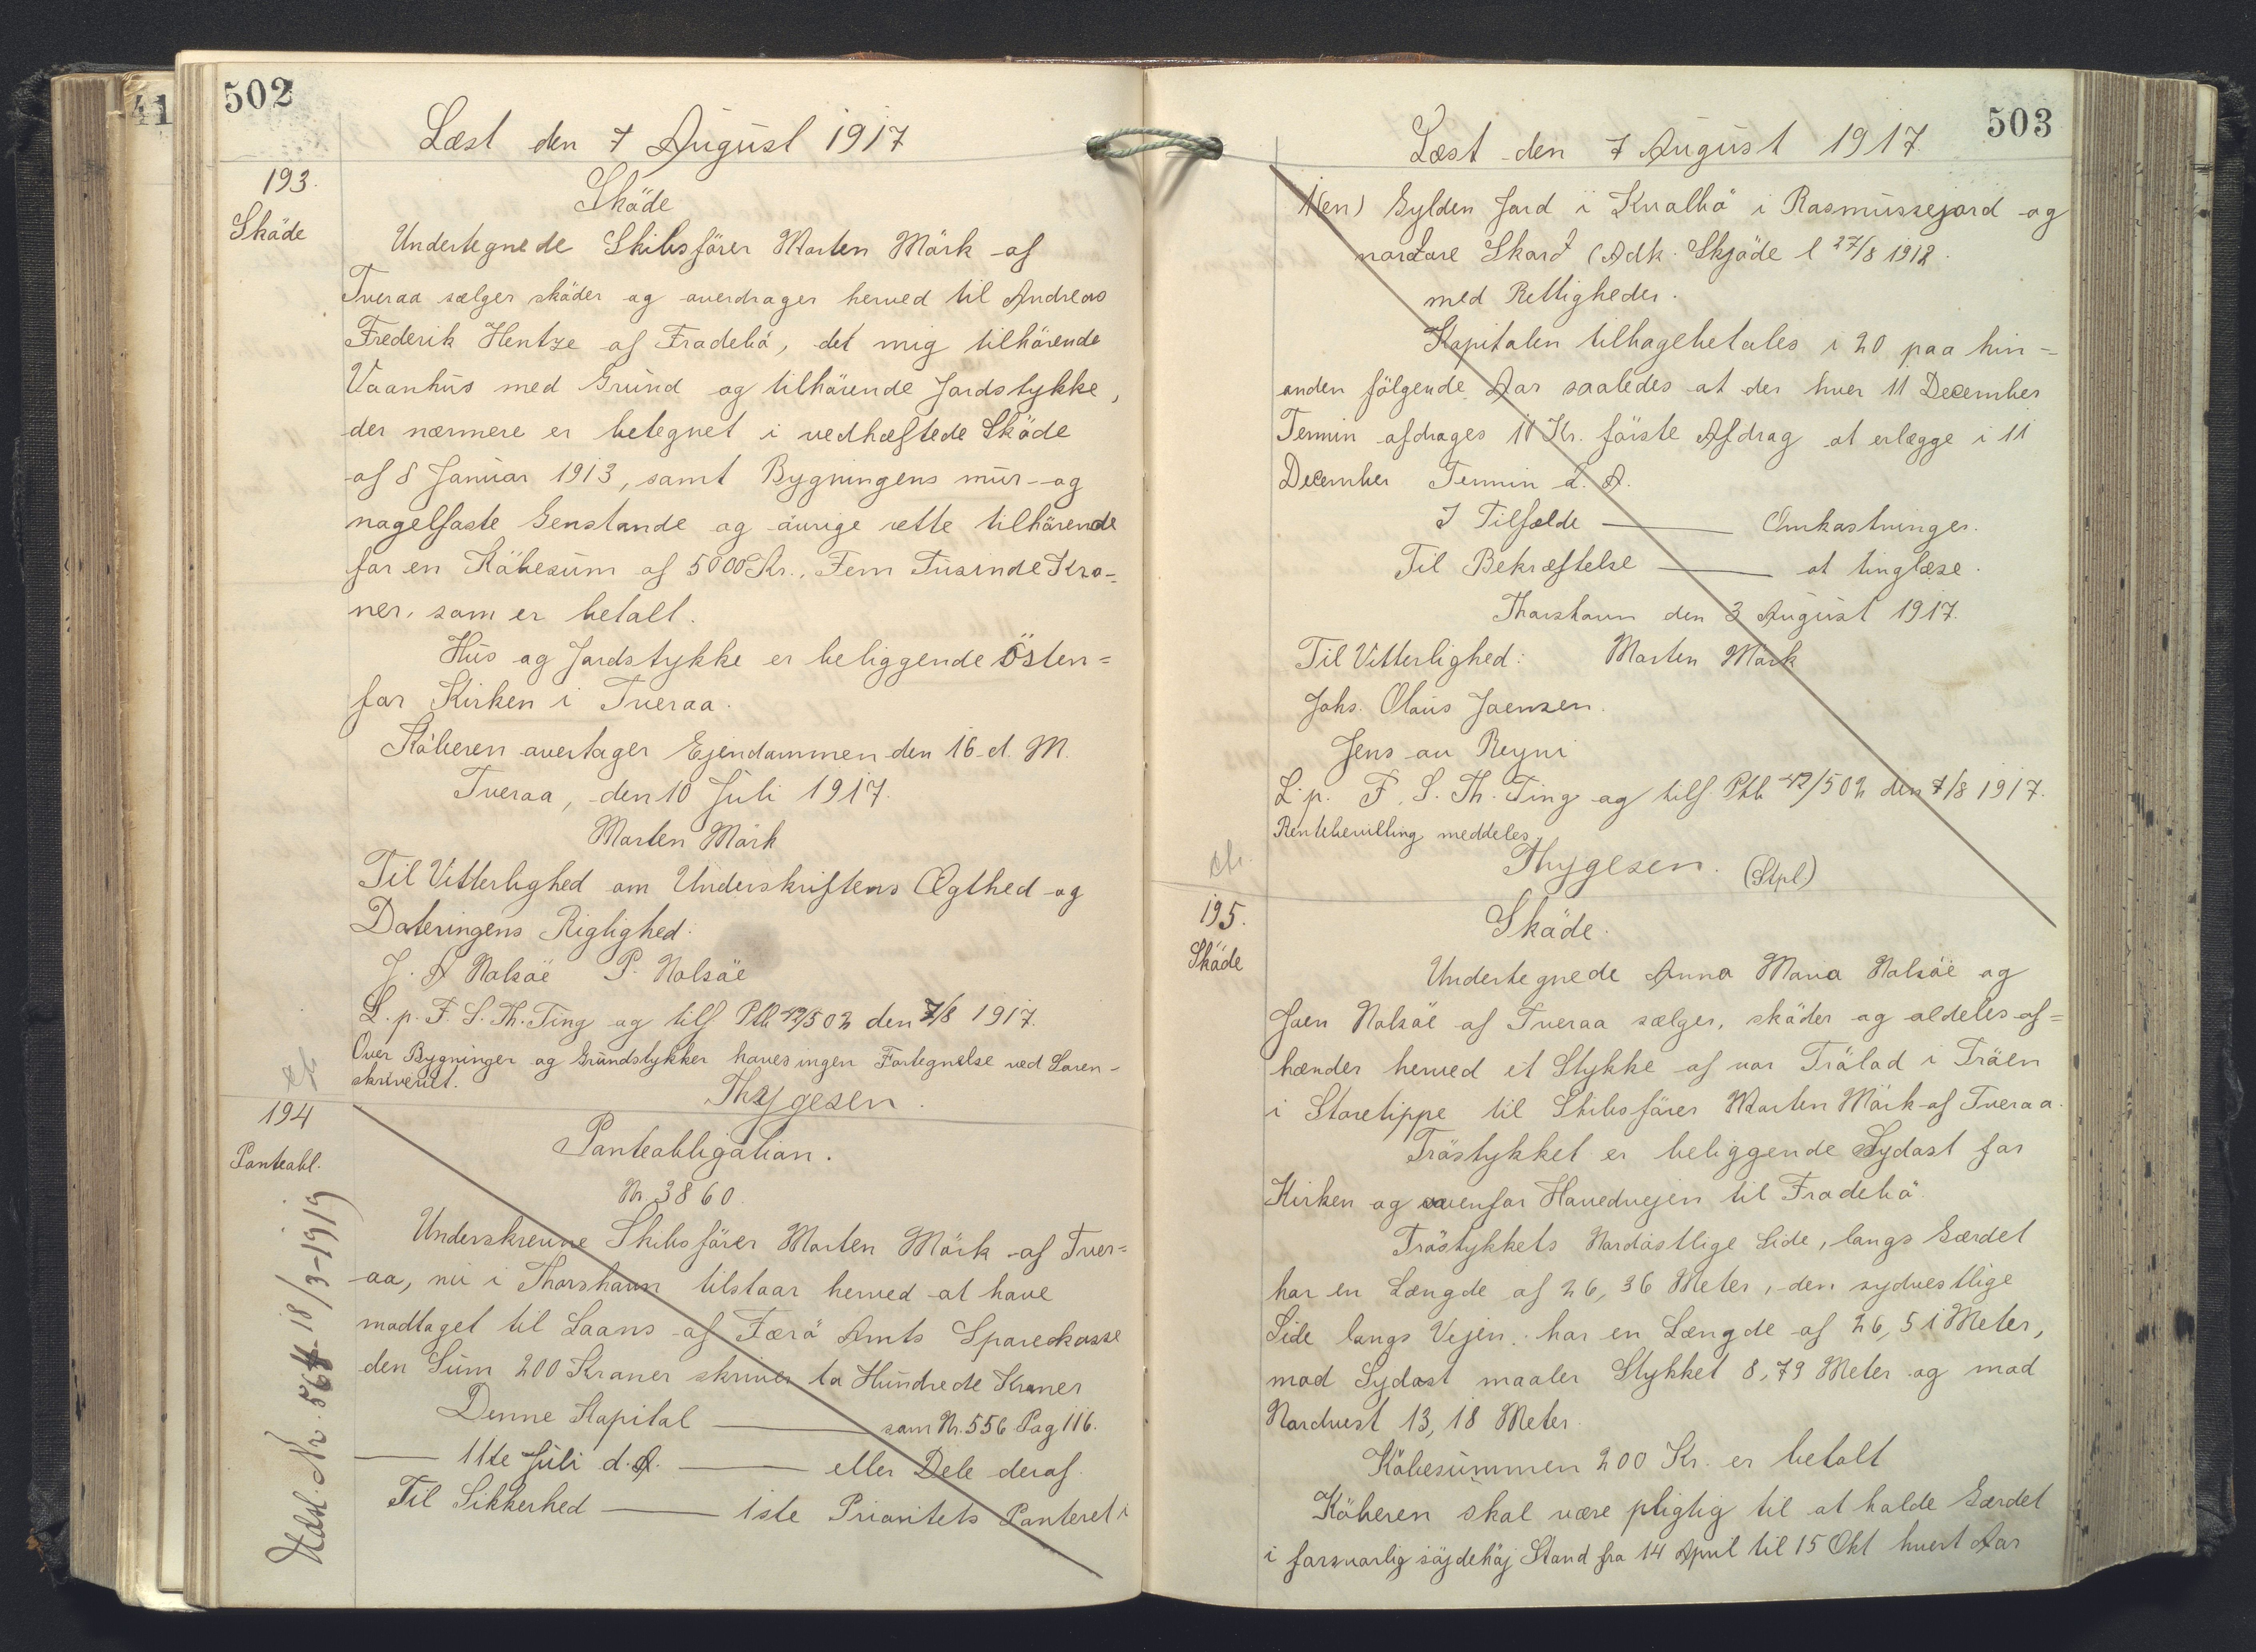 41
502
Læst den 7 August 1917
193.
Sköde
Sköde
Undertegnede Skibsförer Morten Mörk af
Tveraa sælger sköder og overdrager herved til Andreas
Frederik Hentze af Frodebö, det mig tilhörende
Vaanhus med Grund og tilhörende Jordstykke,
der nærmere er betegnet i vedhæftede Sköde
af 8 Januar 1913, samt Bygningens mur- og
nagelfaste Genstande og övrige rette tilhörende
for en Köbesum af 5000 Kr., Fem Tusinde Kro=
ner, som er betalt.
Hus og Jordstykke er beliggende Östen=
for Kirken i Tveraa.
Köberen overtager Ejendommen den 16 d. M.
Tveraa, den 10 Juli 1917.
Morten Mörk
Til Vitterlighed om Underskriftens Ægthed og
Dateringens Rigtighed:
J. A Nolsöe P. Nolsöe
L. p. F. S. Th. Ting og tilf Ptb 42/502 den 7/8 1917.
Over Bygninger og Grundstykker haves ingen Fortegnelse ved Soren-
skriveriet.
Thygesen.
194
Panteobl.
Udsl. Nr. 564 18/3-1919
Panteobligation.
Nr. 3860.
Underskrevne Skibsförer Morten Mörk af Tver=
aa, nu i Thorshavn tilstaar herved at have
modtaget til Laans af Færö Amts Sparekasse
den Sum 200 Kroner skriver to Hundrede Kroner
Denne Kapital — som Nr. 556 Pag 116.
— 11te Juli d. A. — eller Dele deraf.
Til Sikkerhed — 1ste Prioritets Panteret i
503
Læst den 7 August 1917.
1(en) Gylden Jord i Kvalbö i Rasmussejord og
nordare Skard (Adk. Skjöde l 27/8 1912.
med Rettigheder.
Kapitalen tilbagebetales i 20 paa hin=
anden fölgende Aar saaledes at der hver 11 December
Termin afdrages 10 Kr. förste Afdrag at erlægge i 11
December Termin d. A.
I Tilfælde — Omkostninger.
Til Bekræftelse — at tinglæse.
Thorshavn den 3 August 1917.
Til Vitterlighed: Morten Mörk
Johs. Olaus Joensen.
Jens av Reyni
L. p. F. S. Th. Ting og tilf. Ptb 42/502 den 7/8 1917.
Rentebevilling meddeles
Thygesen. (Stpl)
195.
Sköde
Sköde.
Undertegnede Anna Maria Nolsöe og
Joen Nolsöe af Tveraa sælger, sköder og aldeles af=
hænder herved et Stykke af vor Trölod i Tröen
i Storetippe til Skibsförer Morten Mörk af Tveraa.
Tröstykket er beliggende Sydost for
Kirken og ovenfor Hovedvejen til Frodebö.
Tröstykkets Nordöstlige Side, langs Gærdet
har en Længde af 26,36 Meter, den sydvestlige
Side langs Vejen har en Længde af 26,51 Meter,
mod Sydost maaler Stykket 8,79 Meter og mod
Nordvest 13,18 Meter.
Köbesummen 200 Kr. er betalt
Köberen skal være pligtig til at holde Gærdet
i forsvarlig söjdehöj Stand fra 14 April til 15 Okt hvert Aar